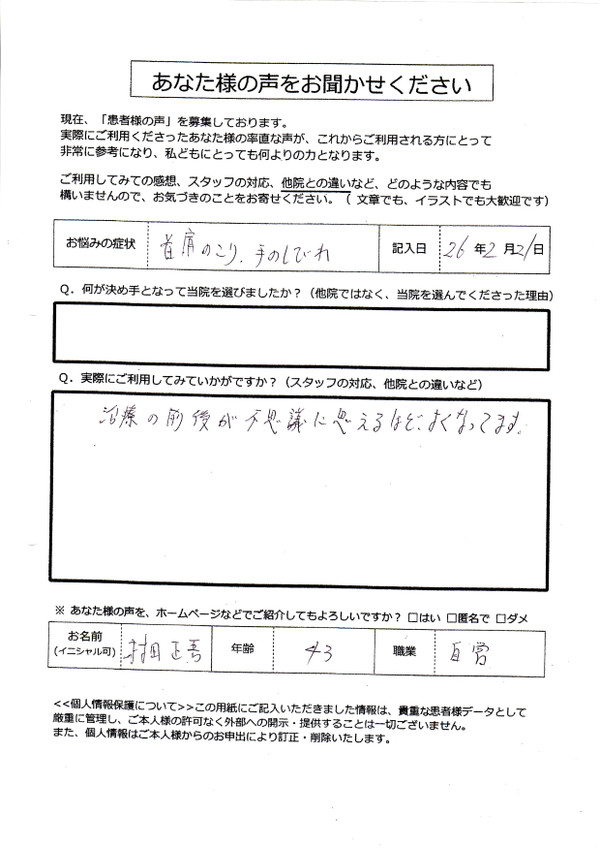 あなた様の声をお聞かせください
現在、「患者様の声」を募集しております。
実際にご利用くださったあなた様の率直な声が、これからご利用される方にとって
非常に参考になり、私どもにとっても何よりの力となります。
ご利用してみての感想、スタッフの対応、他院との違いなど、どのような内容でも
構いませんので、お気づきのことをお寄せください。（ 文章でも、イラストでも大歓迎です）
お悩みの症状 首肩のこり、手のしびれ 記入日 26年2月21日
Q．何が決め手となって当院を選びましたか？（他院ではなく、当院を選んでくださった理由）
Q．実際にご利用してみていかがですか？（スタッフの対応、他院との違いなど）
治療の前後が不思議に思えるほど、よくなってます。
※ あなた様の声を、ホームページなどでご紹介してもよろしいですか？ □はい □匿名で □ダメ
お名前 (イニシャル可) 村田正吾 年齢 43 職業 自営
<<個人情報保護について>>この用紙にご記入いただきました情報は、貴重な患者様データとして
厳重に管理し、ご本人様の許可なく外部への開示・提供することは一切ございません。
また、個人情報はご本人様からのお申出により訂正・削除いたします。